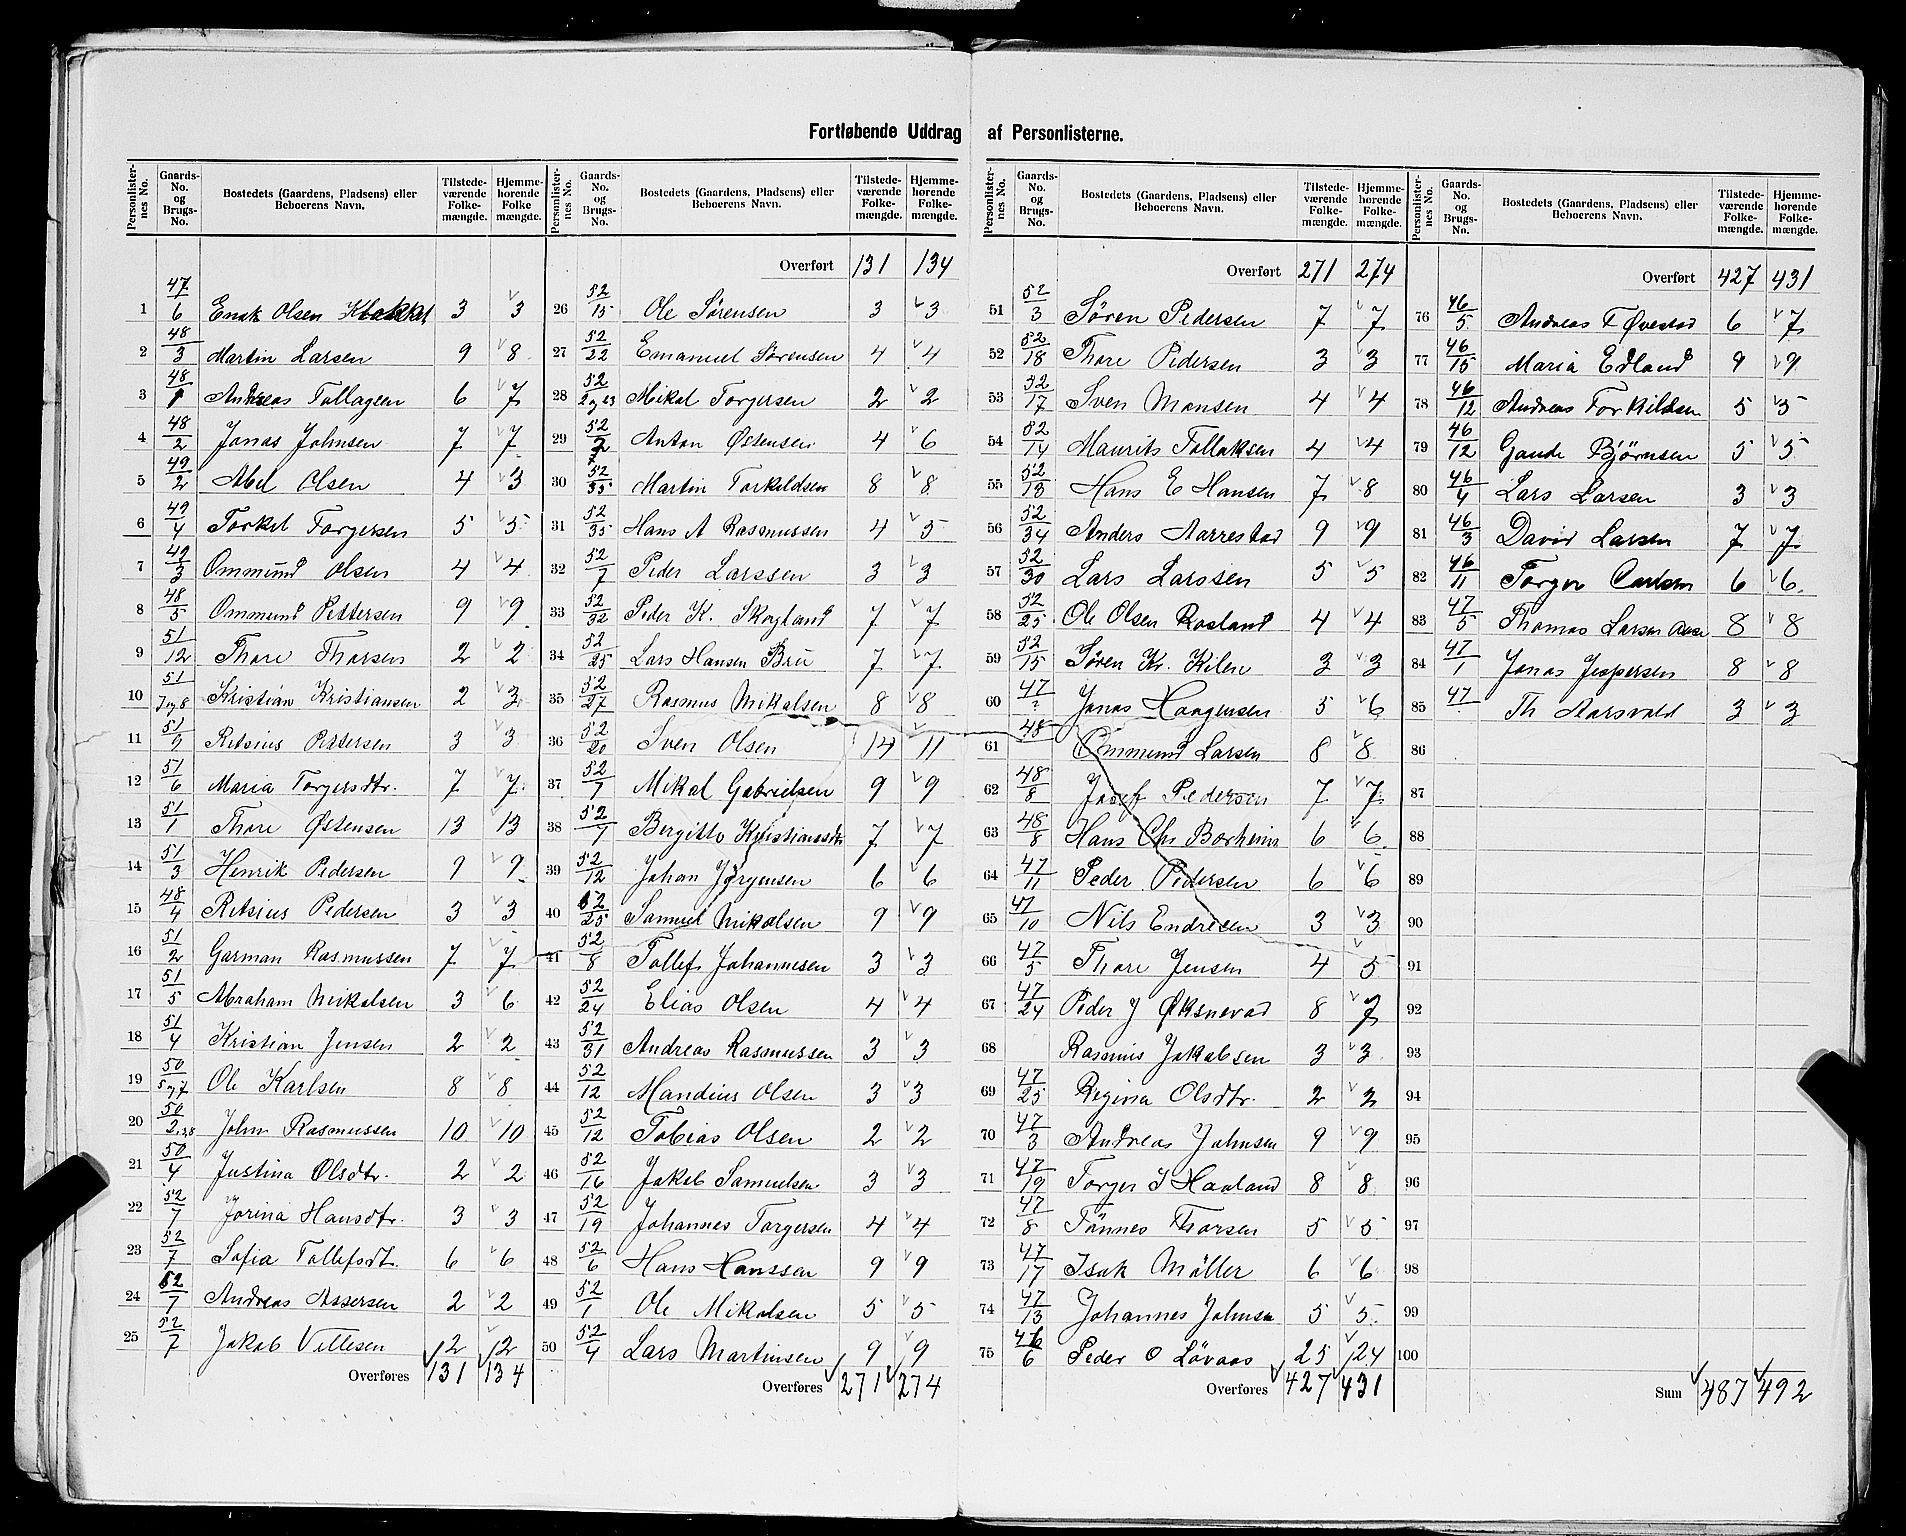 Fortløbende Uddrag af Personlisterne.
Personlisternes No. | Gaards-No. og Brugs-No. | Bostedets (Gaardens, Pladsens) eller Beboerens Navn. | Tilstedeværende Folkemængde. | Hjemmehørende Folkemængde.
1 47/6 Enok Olsen 3 3
2 48/3 Martin Larsen 9 8
3 48/1 Andreas Tollagsen 6 7
4 48/2 Jonas Johnsen 7 7
5 49/2 Abel Olsen 4 3
6 49/4 Torkel Torgersen 5 5
7 49/3 Ommund Olsen 4 4
8 48/5 Ommund Pettersen 9 9
9 51/12 Thore Thorsen 2 2
10 51/7og8 Kristian Kristiansen 2 3
11 51/9 Retsius Pettersen 3 3
12 51/6 Maria Torgersdtr. 7 7
13 51/1 Thore Østensen 13 13
14 51/3 Henrik Pedersen 9 9
15 48/4 Retsius Pedersen 3 3
16 51/2 Garman Rasmussen 7 7
17 51/5 Abraham Mikalsen 3 6
18 51/4 Kristian Jensen 2 2
19 50/5og7 Ole Karlsen 8 8
20 50/2,3,8 John Rasmussen 10 10
21 50/4 Justina Olsdtr. 2 2
22 52/7 Jorina Hansdtr. 3 3
23 52/7 Sofia Tollefsdt. 6 6
24 52/7 Andreas Assersen 2 2
25 52/7 Jakob Villesen 12 12
Overføres 131 134
Overført 131 134
26 52/15 Ole Sørensen 3 3
27 52/22 Emanuel Sørensen 4 4
28 52/2og23 Mikal Torgersen 2 2
29 52/2 Anton Østensen 4 6
30 52/33 Martin Torkildsen 8 8
31 52/35 Hans A Rasmussen 4 5
32 52/7 Peder Larssen 3 3
33 52/32 Peder K. Skogland 7 7
34 52/25 Lars Hansen Bru 7 7
35 52/27 Rasmus Mikalsen 8 8
36 52/20 Sven Olsen 14 11
37 52/7 Mikal Gabrielsen 9 9
38 52/7 Bergitte Kristiansdt 7 7
39 52/12 Johan Jørgensen 6 6
40 52/25 Samuel Mikalsen 9 9
41 52/8 Tollef Johannesen 3 3
42 52/24 Elias Olsen 4 4
43 52/31 Andreas Rasmussen 3 3
44 52/12 Mandius Olsen 3 3
45 52/12 Tobias Olsen 2 2
46 52/16 Jakob Samuelsen 3 3
47 52/19 Johannes Torgersen 4 4
48 52/6 Hans Hanssen 9 9
49 52/1 Ole Mikalsen 5 5
50 52/4 Lars Martinsen 9 9
Overføres 271 274
Overført 271 274
51 52/3 Søren Pedersen 7 7
52 52/18 Thore Pedersen 3 3
53 52/17 Sven Monsen 4 4
54 52/14 Maurits Tollaksen 4 4
55 52/18 Hans E Hansen 7 8
56 52/34 Anders Aarrestad 9 9
57 52/30 Lars Larssen 5 5
58 52/25 Ole Olsen Rosland 4 4
59 52/15 Søren Kr. Kilen 3 3
60 47/? Jonas Haagensen 5 6
61 48 Ommund Larsen 8 8
62 48/8 Josef Pedersen 7 7
63 48/8 Hans Chr Borheim 6 6
64 47/11 Peder Pedersen 6 6
65 47/10 Nils Endresen 3 3
66 47/5 Thore Jensen 4 5
67 47/24 Peder J Øksnevad 8 7
68 Rasmus Jakobsen 3 3
69 47/25 Regina Olsdtr. 2 2
70 47/3 Andreas Johnsen 9 9
71 47/19 Torger I Haaland 8 8
72 47/8 Tönnes Thorsen 5 5
73 47/17 Isak Möller 6 6
74 47/13 Johannes Johnsen 5 5
75 46/6 Peder O Lövaas 25 24
Overføres 427 431
Overført 427 431
76 46/5 Andreas T Øvestad 6 7
77 46/15 Maria Edland 9 9
78 46/12 Andreas Torkildsen 5 5
79 46/12 Gaude Bjørnsen 5 5
80 46/4 Lars Larsen 3 3
81 46/3 David Larsen 7 7
82 46/11 Torger Carlsen 6 6
83 47/5 Thomas Larsen 8 8
84 47/1 Jonas Jespersen 8 8
85 47 Th Aarsvold 3 3
86
87
88
89
90
91
92
93
94
95
96
97
98
99
100
Sum 487 492